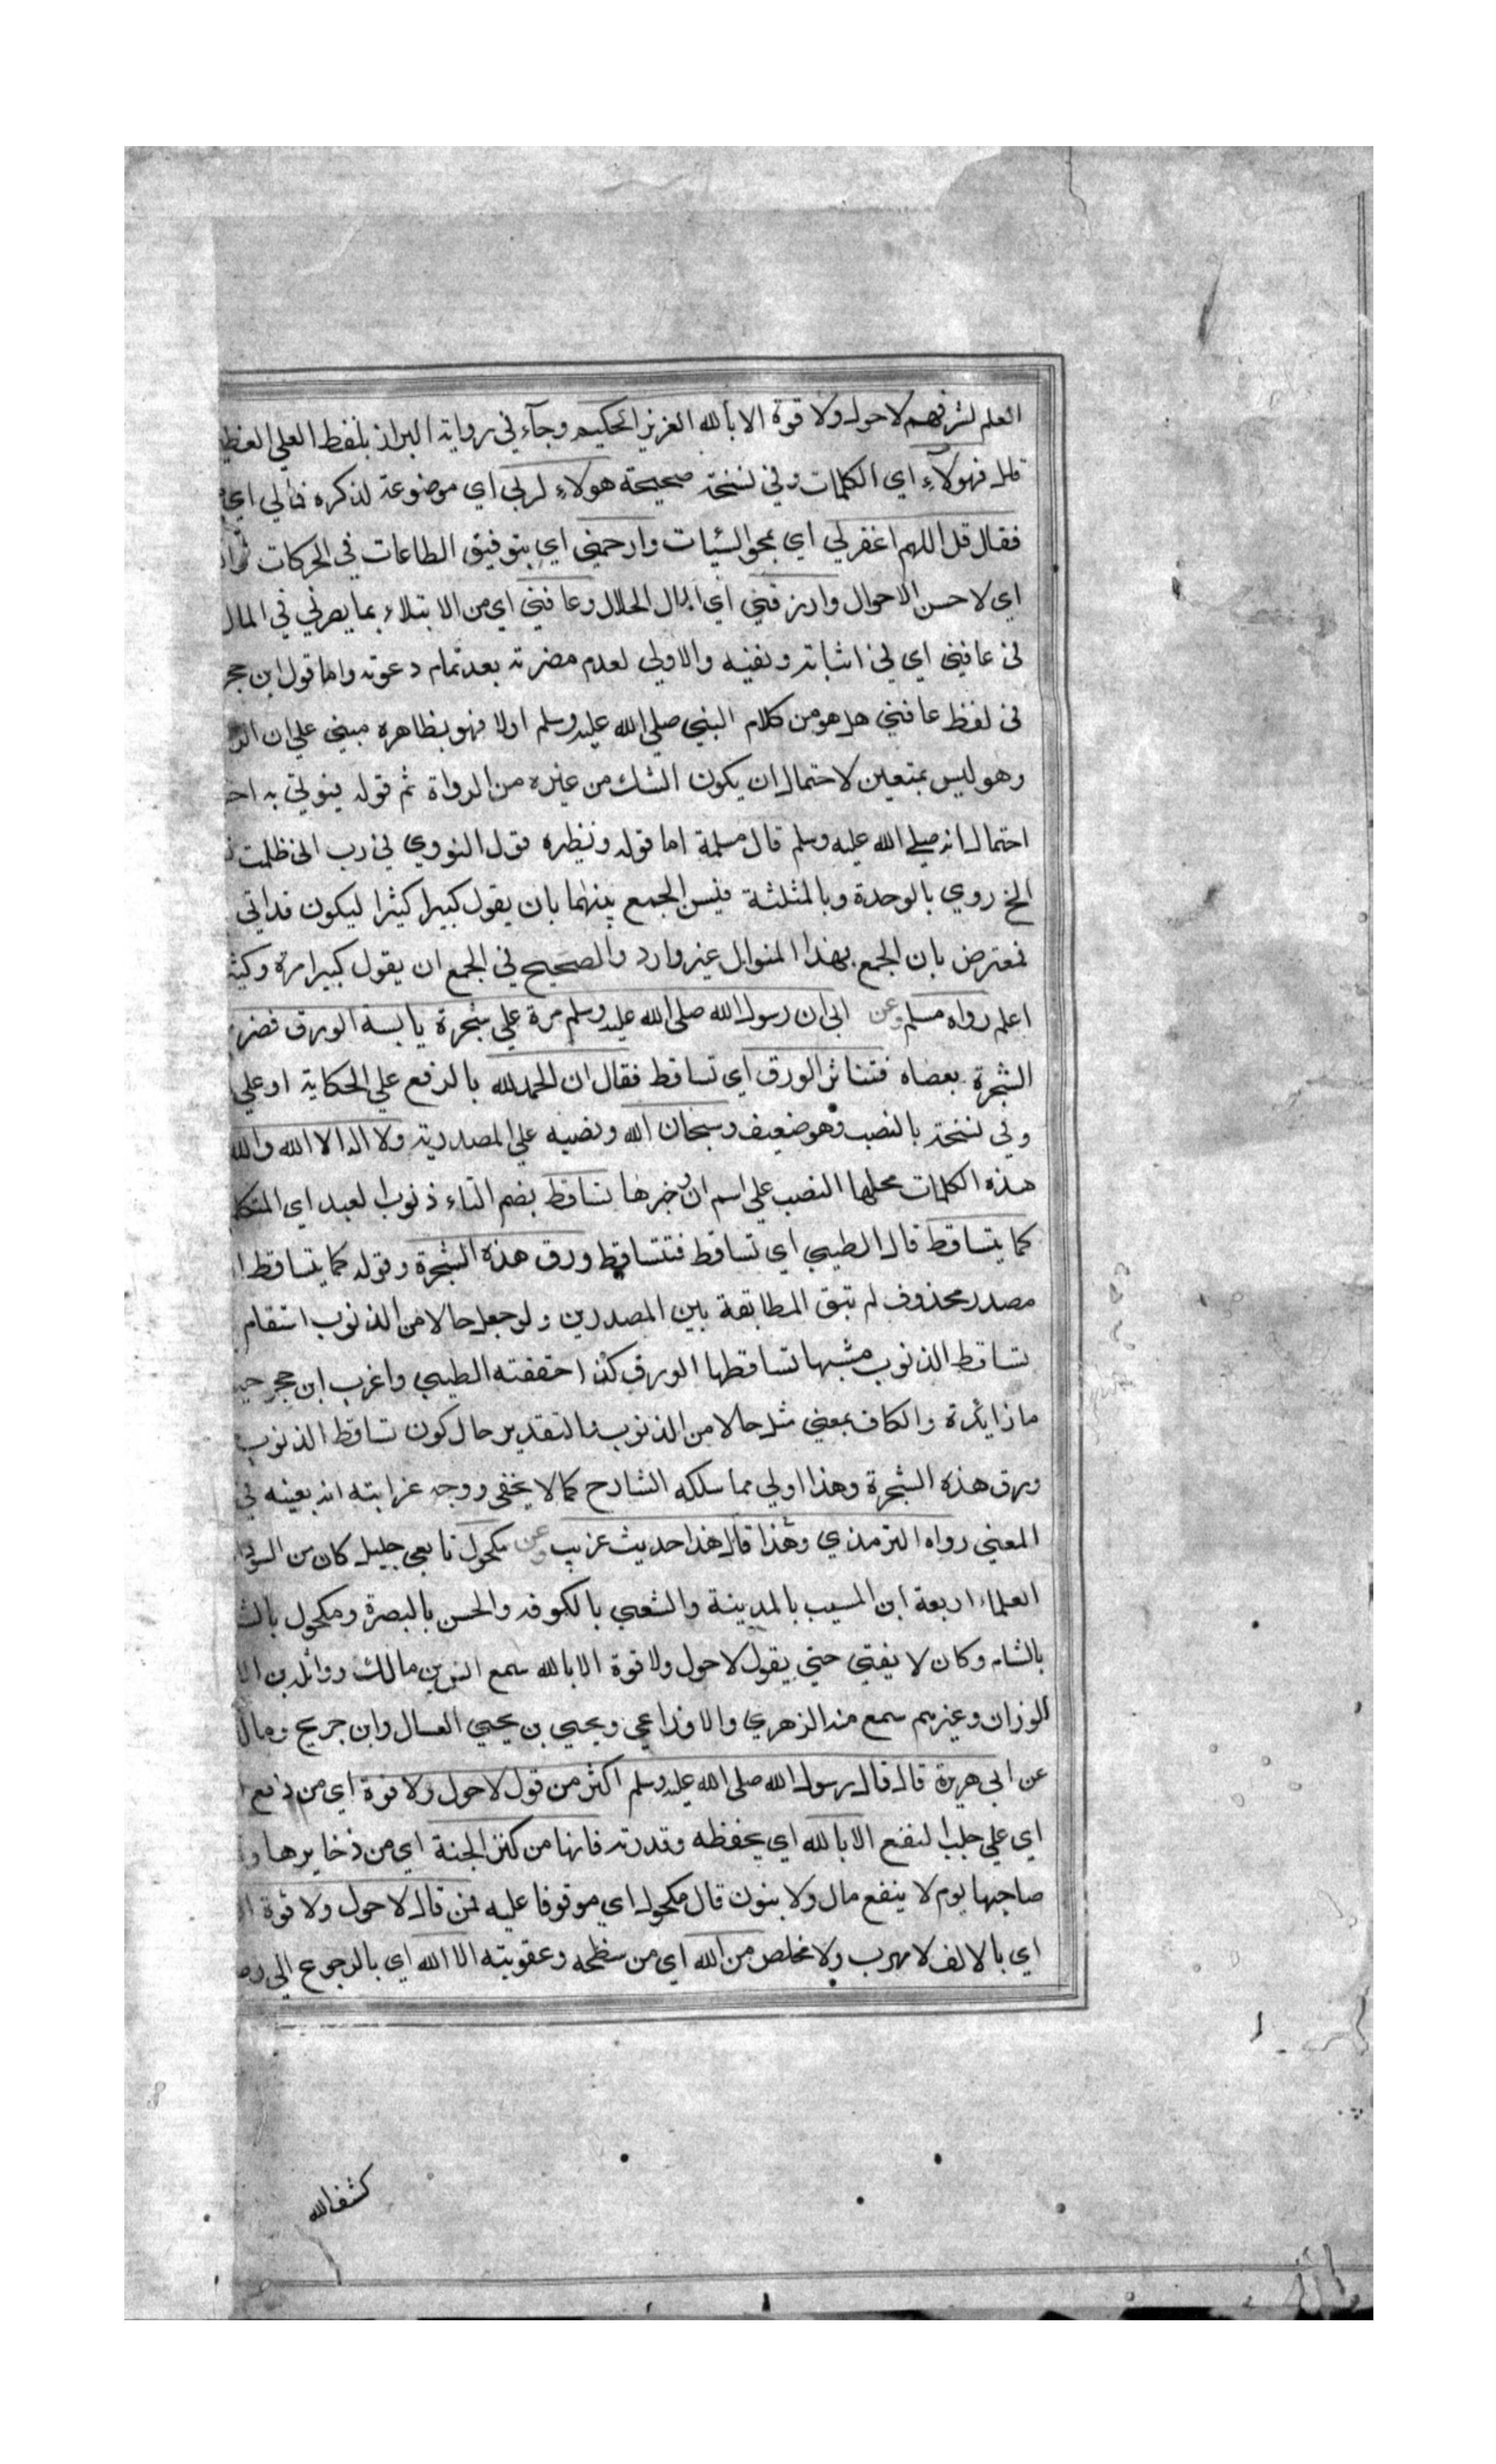 العلم لشرفهم لا حول ولا قوة الا بالله العزيز الحكيم وجآء في رواية البزاز بلفظ العلي العظيم
قال فهولآء اي الكلمات وفي نسخة صحيحة هولاء لربي اي موضوعة لذكره فمالي اي
فقال قل اللهم اغفر لي اي بمحو السيئات وارحمني اي بتوفيق الطاعات في الحركات
اي لاحسن الاحوال وارزقني اي المال الحلال وعافني اي من الابتلاء بما يضرني في المال
في عافني اي في اثباته ونفيه والاولي لعدم مضرته بعد تمام دعوته واما قول ابن حجر
في لفظ عافني هل هو من كلام النبي صلي الله عليه وسلم اولا فهو بظاهره مبني علي ان
وهو ليس بمتعين لاحتمال ان يكون الشك من غيره من الرواة ثم قوله فيوتي به
احتمال انه صلي الله عليه وسلم قال مسلمة اما قوله ونظيره قول النووي في رب اني ظلمت
الخ روي بالوحدة وبالمثلثة فيسن الجمع بينهما بان يقول كبيرا كثيرا ليكون قد اتي
فمعترض بان الجمع بهذا المنوال غير وارد والصحيح في الجمع ان يقول كبيرا مرة
اعلم رواه مسلم وعن ان رسول الله صلي الله عليه وسلم مرة علي شجرة يابسة الورق
الشجرة بعصاه فتناثر الورق اي تساقط فقال ان الحمد لله بالرفع علي الحكاية او علي
وفي نسخة بالنصب وهو ضعيف وسبحان الله ونصبه علي المصدرية ولا اله الا الله والله
هذه الكلمات محلها النصب علي اسم ان وخبرها تساقط بضم التاء ذنوب العبد اي
كما يتساقط قال الطيبي اي تساقط فتتساقط ورق هذه الشجرة وقوله كما يتساقط
مصدر محذوف لم تبق المطابقة بين المصدرين ولو جعل حالا من الذنوب استقام
تساقط الذنوب مشبها تساقطها الورق كذا حققته الطيبي واغرب ابن حجر
ما زائدة والكاف بمعني مثل حالا من الذنوب فالتقدير حال كون تساقط الذنوب
ورق هذه الشجرة وهذا اولي مما سلكه الشارح كما لا يخفي ووجه غرابته انه بعينه في
المعني رواه الترمذي وهذا قال هذا حديث غريب وعن مكحول تابعي جليل كان من
العلماء اربعة ابن المسيب بالمدينة والشعبي بالكوفه والحسن بالبصرة ومكحول
بالشام وكان لا يفتي حتي يقول لا حول ولا قوة الا بالله سمع انس بن مالك وواثلة بن
الوزان وغيرهم سمع منه الزهري والاوزاعي ويحيي بن يحيي العسال وابن جريج
عن ابي هريرة قال قال رسول الله صلي الله عليه وسلم اكثر من قول لا حول ولا قوة اي من
اي علي جلب النفع الا بالله اي بحفظه وقدرته فانها من كنز الجنة اي من ذخايرها
صاحبها يوم لا ينفع مال ولا بنون قال مكحول اي موقوفا عليه فمن قال لا حول ولا قوة
اي بالالف لا مهرب ولا مخلص من الله اي من سخطه وعقوبته الا الله اي بالرجوع الي
كشف الله